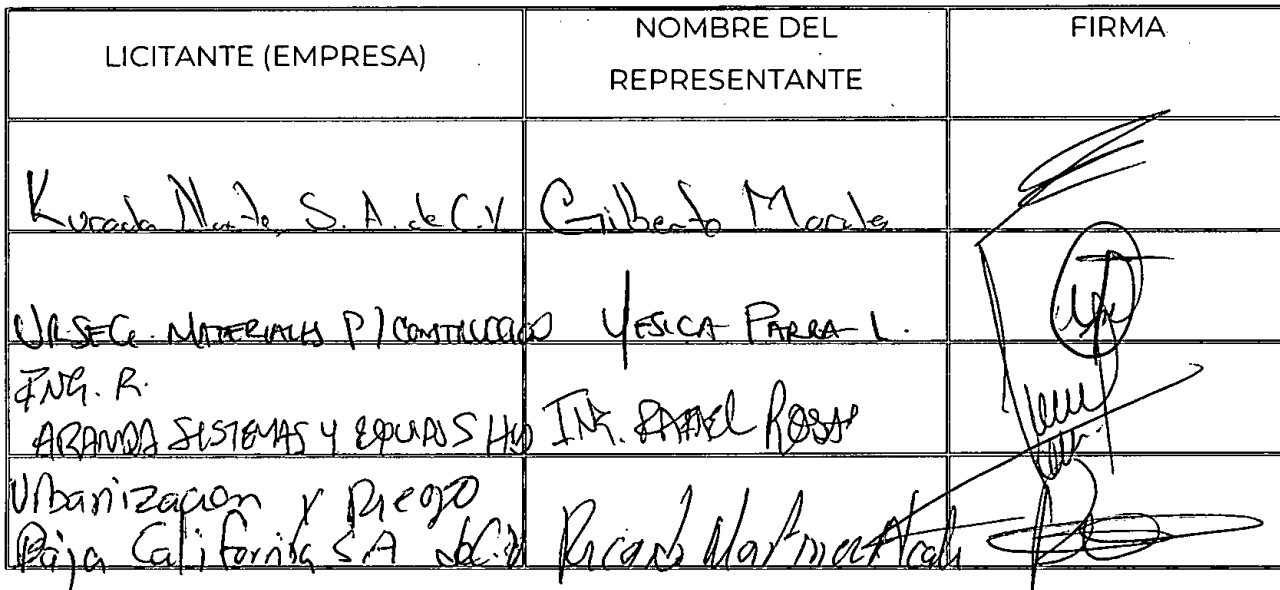 LICITANTE (EMPRESA)
NOMBRE DEL
REPRESENTANTE
FIRMA
Kuroda Norte, S.A. de C.V
Gilberto Morales
MATERIALES P/CONSTRUCCION
YESICA PARRA L.
ING. R.
ARANDA SISTEMAS Y EQUIPOS HID
ING. RAFAEL ROSAS
Urbanización y Riego
Baja California S.A de C.V
Ricardo Martinez